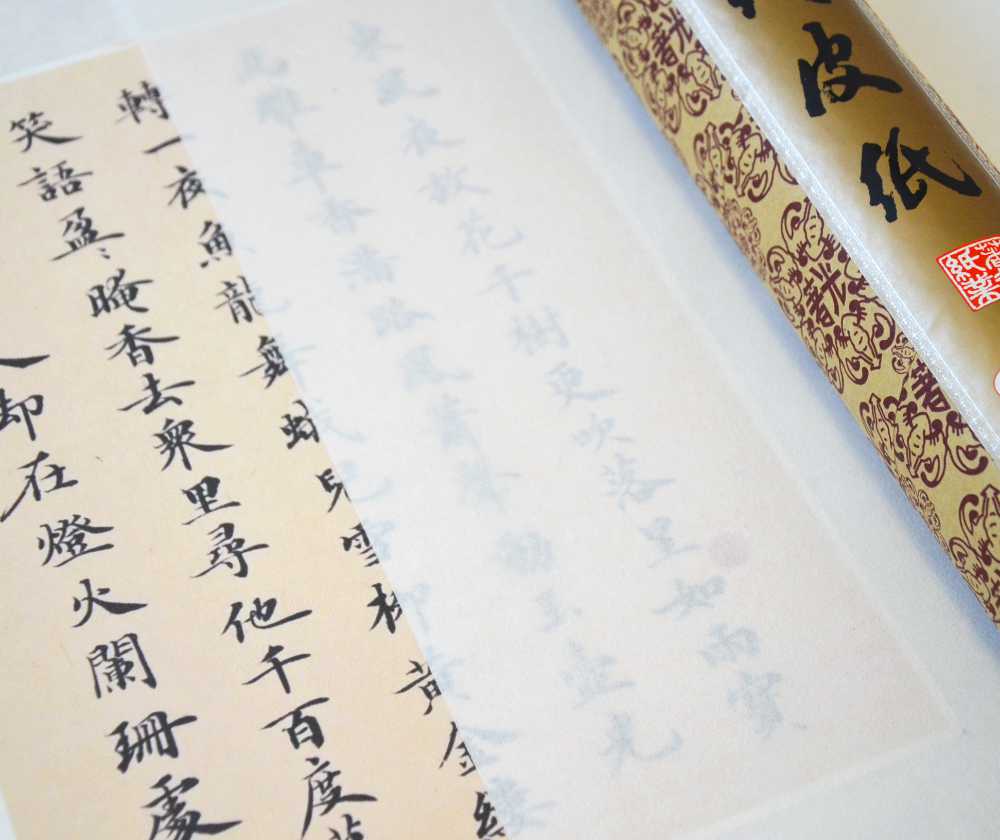 皮紙
紙業
東風夜放花千樹更吹落星如雨寶
馬雕車香滿路鳳簫聲動玉壺光
轉一夜魚龍舞蛾兒雪柳黃金縷
笑語盈〻晻香去衆里尋他千百度
人却在燈火闌珊處